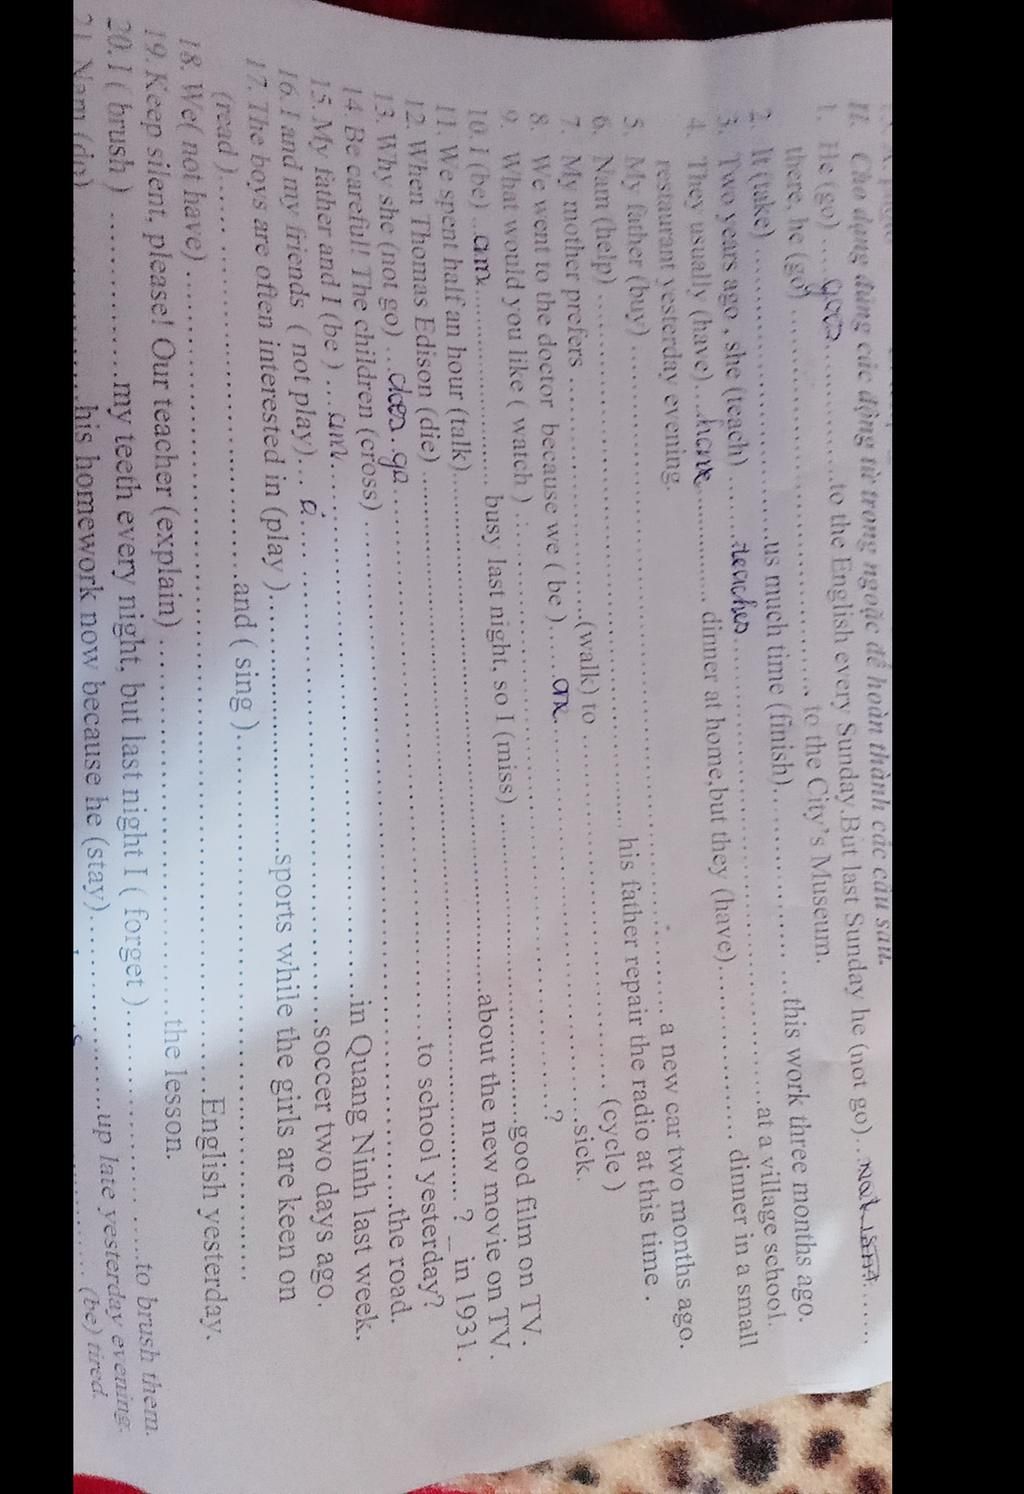 II. Cho dạng đúng các động từ trong ngoặc để hoàn thành các câu sau.
1. He (go) ....goes................to the English every Sunday.But last Sunday he (not go)...not ......
there, he (go) ............................ to the City's Museum.
2. It (take) ..............................us much time (finish)..................this work three months ago.
3. Two years ago , she (teach) .......teaches............................at a village school.
4. They usually (have)...have............. dinner at home,but they (have)................. dinner in a small
restaurant yesterday evening.
5. My father (buy) ............................................................ a new car two months ago.
6. Nam (help) .................................................. his father repair the radio at this time .
7. My mother prefers .........................(walk) to ........................... (cycle )
8. We went to the doctor because we ( be )....are.........................sick.
9. What would you like ( watch ) ..................................................?
10. I (be) ..am..................... busy last night, so I (miss) ................................good film on TV.
11. We spent half an hour (talk)..................................................about the new movie on TV .
12. When Thomas Edison (die) .................................................. ? _ in 1931.
13. Why she (not go) ...does..go..................................................to school yesterday?
14. Be careful! The children (cross) ..................................................the road.
15. My father and I (be ) ...am..................................................in Quang Ninh last week.
16. I and my friends ( not play)... ..................................................soccer two days ago.
17. The boys are often interested in (play )..............................sports while the girls are keen on
(read )..................................and ( sing )..................................................
18. We( not have) ..................................................English yesterday.
19. Keep silent, please! Our teacher (explain) ........................................the lesson.
20. I ( brush ) ....................my teeth every night, but last night I ( forget )..............................to brush them.
21. Nam (do) ....................his homework now because he (stay)....................up late yesterday evening.
(be) tired.